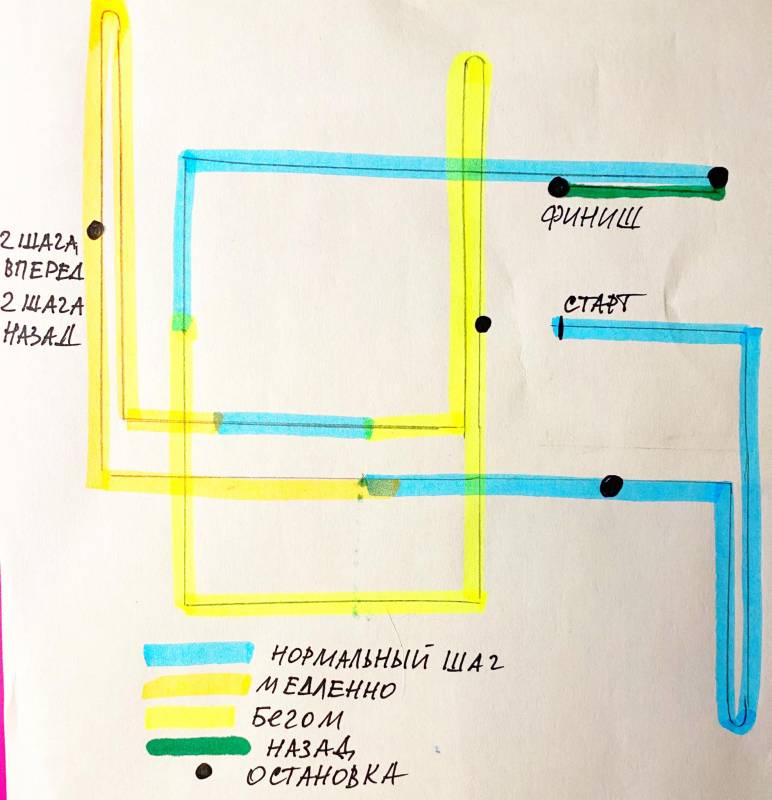 ФИНИШ
2 ШАГА
ВПЕРЕД
2 ШАГА
НАЗАД
СТАРТ
НОРМАЛЬНЫЙ ШАГ
МЕДЛЕННО
БЕГОМ
НАЗАД
ОСТАНОВКА